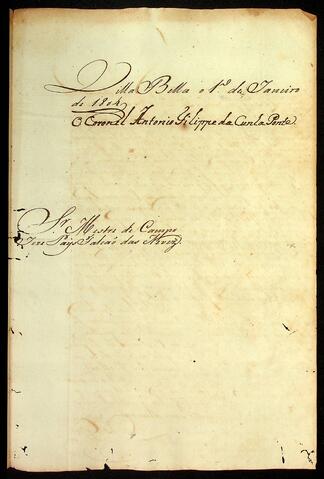 Villa Bella o 1º de Janeiro
de 1804
O Coronel Antonio Filippe da Cunha Ponte.
Sr. Mestre de Campo
Joze Paes Falcaõ das Neves